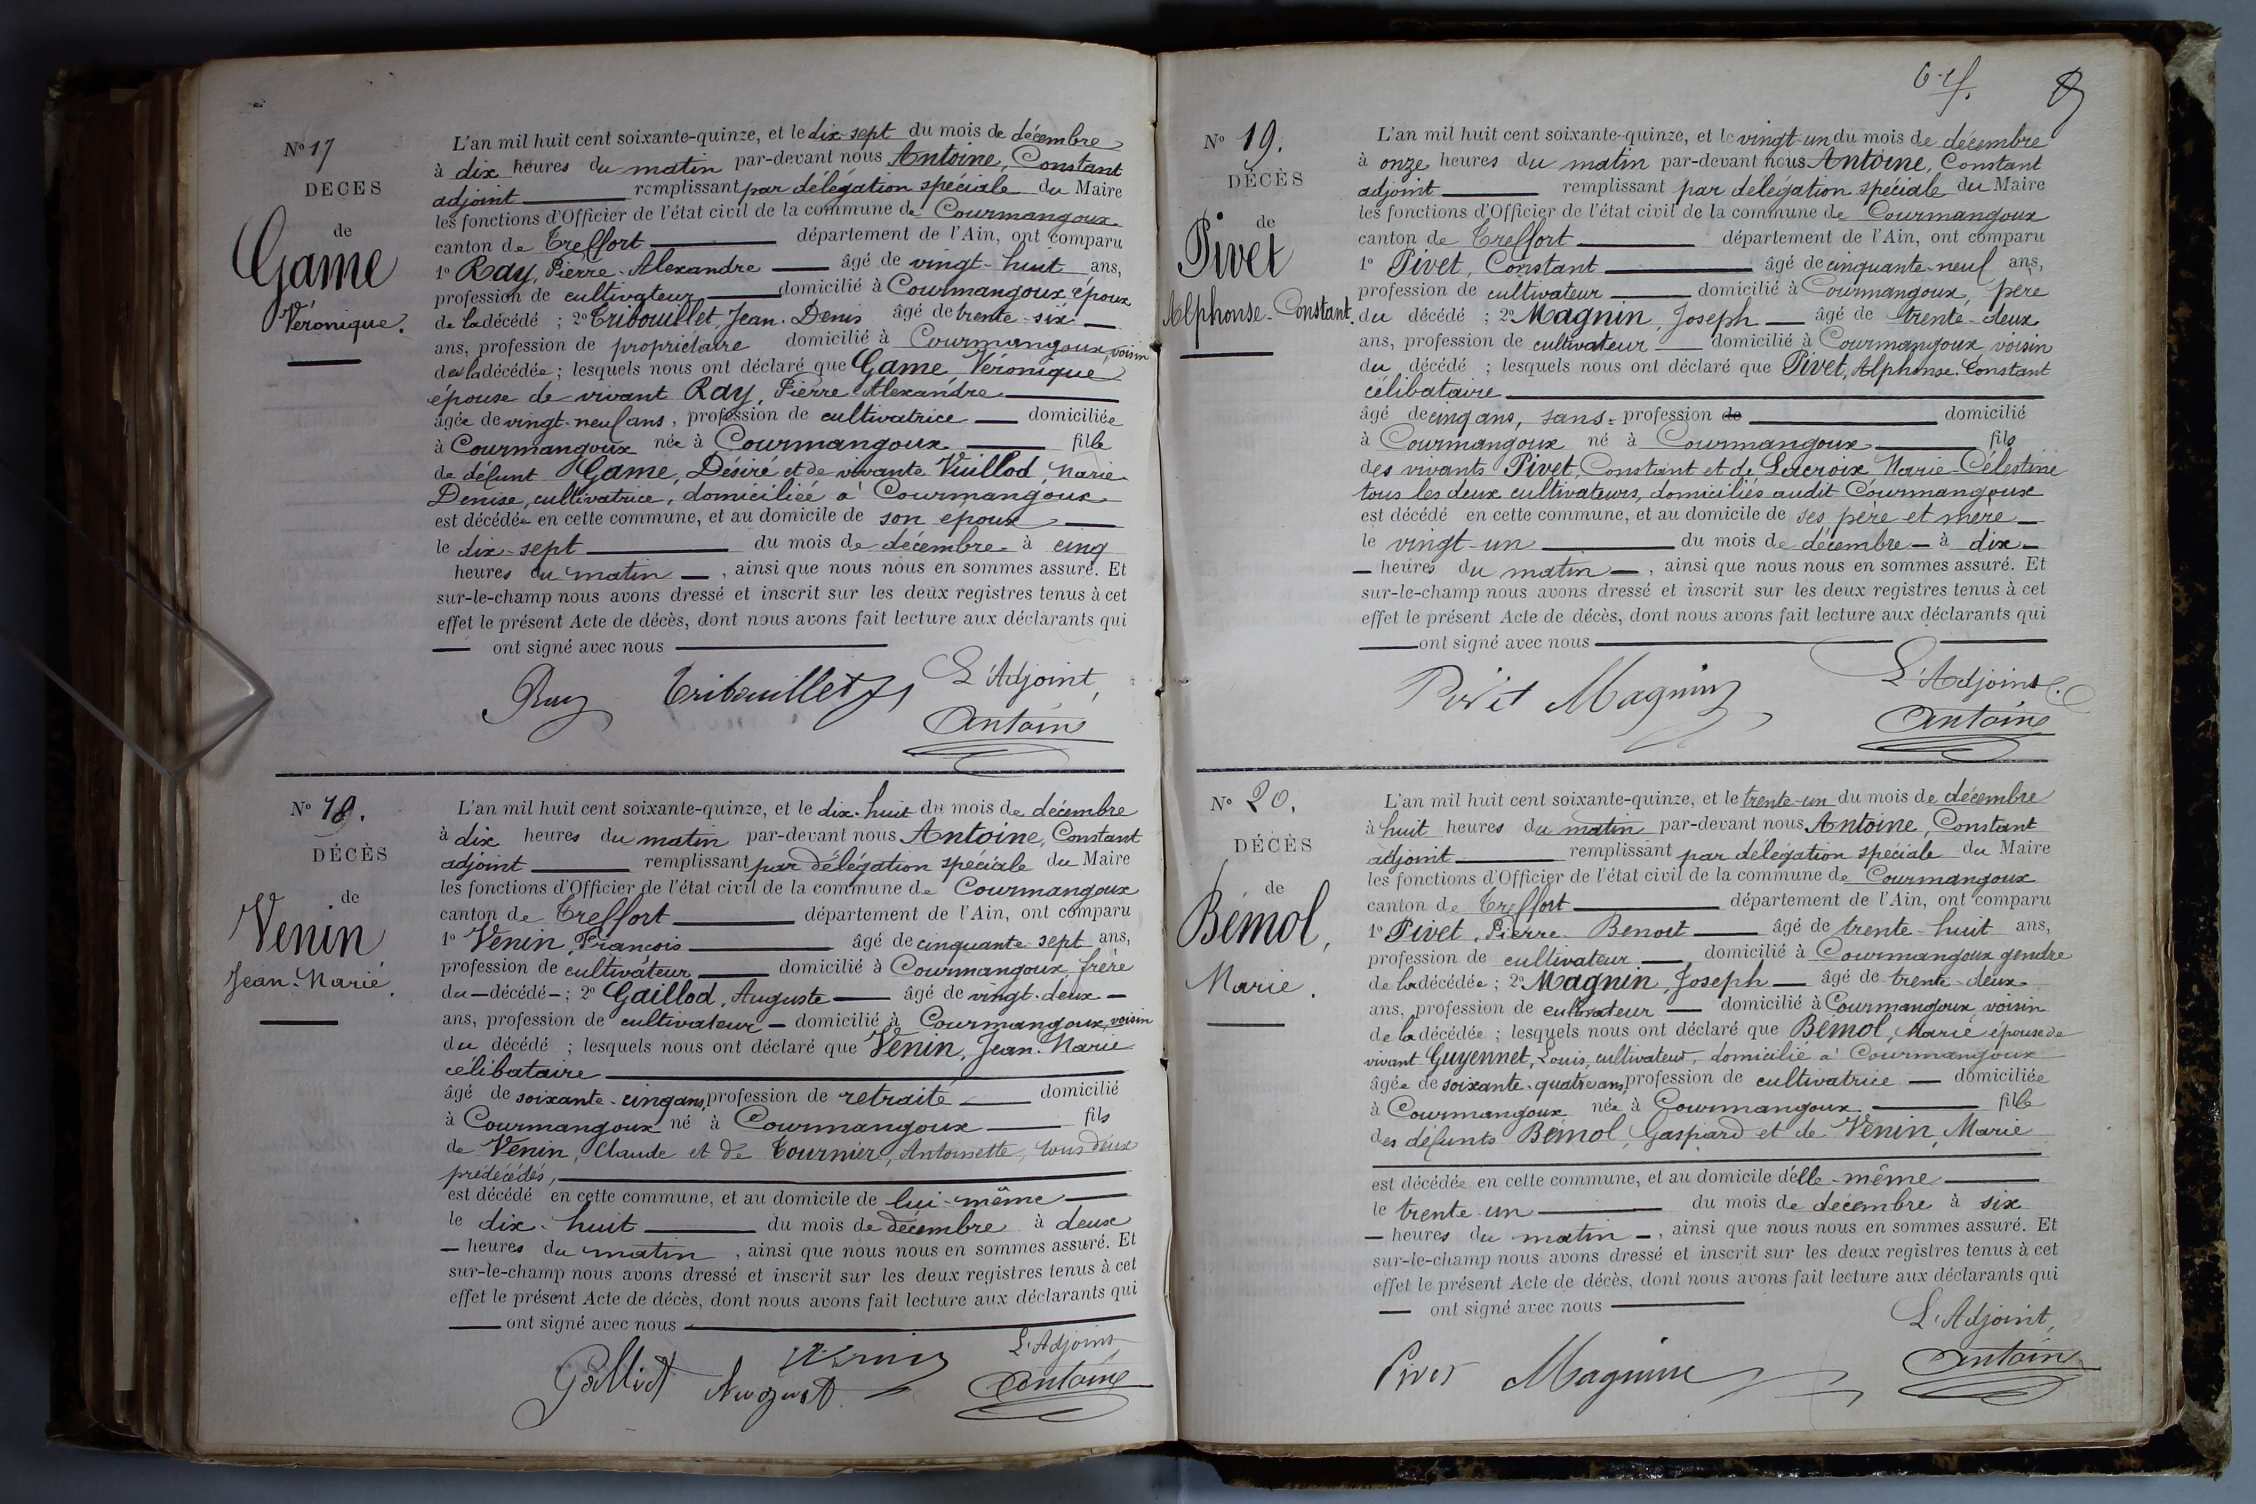 N° 17
DÉCES
de
Game
Véronique.
L'an mil huit cent soixante-quinze, et le dix-sept du mois de décembre
à dix heures du matin par-devant nous Antoine, Constant
adjoint remplissant par délégation spéciale du Maire
les fonctions d'Officier de l'état civil de la commune de Courmangoux
canton de Treffort département de l'Ain, ont comparu
1° Ray, Pierre-Alexandre âgé de vingt-huit ans,
profession de cultivateur domicilié à Courmangoux, époux
de la décédé ; 2° Tribouillet Jean-Denis âgé de trente-six
ans, profession de propriétaire domicilié à Courmangoux, voisin
de la décédée ; lesquels nous ont déclaré que Game Véronique
épouse de vivant Ray, Pierre-Alexandre
âgée de vingt-neuf ans, profession de cultivatrice domiciliée
à Courmangoux née à Courmangoux fille
de défunt Game, Désiré et de vivante Vuillod, Marie
Denise, cultivatrice, domiciliée à Courmangoux
est décédée en cette commune, et au domicile de son époux
le dix-sept du mois de décembre à cinq
heures du matin , ainsi que nous nous en sommes assuré. Et
sur-le-champ nous avons dressé et inscrit sur les deux registres tenus à cet
effet le présent Acte de décès, dont nous avons fait lecture aux déclarants qui
ont signé avec nous
Ray Tribouillet L'Adjoint,
Antoine
N° 18.
DÉCÈS
de
Venin
Jean-Marie.
L'an mil huit cent soixante-quinze, et le dix-huit du mois de décembre
à dix heures du matin par-devant nous Antoine, Constant
adjoint remplissant par délégation spéciale du Maire
les fonctions d'Officier de l'état civil de la commune de Courmangoux
canton de Treffort département de l'Ain, ont comparu
1° Venin, François âgé de cinquante-sept ans,
profession de cultivateur domicilié à Courmangoux, frère
du décédé ; 2° Gaillod, Auguste âgé de vingt-deux
ans, profession de cultivateur domicilié à Courmangoux, voisin
du décédé ; lesquels nous ont déclaré que Venin, Jean-Marie
célibataire
âgé de soixante-cinq ans, profession de retraité domicilié
à Courmangoux né à Courmangoux fils
de Venin, Claude et de Tournier, Antoinette, tous deux
prédécédés,
est décédé en cette commune, et au domicile de lui-même
le dix-huit du mois de décembre à deux
heures du matin , ainsi que nous nous en sommes assuré. Et
sur-le-champ nous avons dressé et inscrit sur les deux registres tenus à cet
effet le présent Acte de décès, dont nous avons fait lecture aux déclarants qui
ont signé avec nous
Venin L'Adjoint,
Antoine
N° 19.
DÉCÈS
de
Pivet
Alphonse-Constant.
L'an mil huit cent soixante-quinze, et le vingt-un du mois de décembre
à onze heures du matin par-devant nous Antoine, Constant
adjoint remplissant par délégation spéciale du Maire
les fonctions d'Officier de l'état civil de la commune de Courmangoux
canton de Treffort département de l'Ain, ont comparu
1° Pivet, Constant âgé de cinquante-neuf ans,
profession de cultivateur domicilié à Courmangoux, père
du décédé ; 2° Magnin, Joseph âgé de trente-deux
ans, profession de cultivateur domicilié à Courmangoux voisin
du décédé ; lesquels nous ont déclaré que Pivet, Alphonse-Constant
célibataire
âgé de cinq ans, sans profession de domicilié
à Courmangoux né à Courmangoux fils
des vivants Pivet, Constant et de Lacroix Marie-Célestine
tous les deux cultivateurs, domiciliés audit Courmangoux
est décédé en cette commune, et au domicile de ses père et mère
le vingt-un du mois de décembre à dix
heures du matin , ainsi que nous nous en sommes assuré. Et
sur-le-champ nous avons dressé et inscrit sur les deux registres tenus à cet
effet le présent Acte de décès, dont nous avons fait lecture aux déclarants qui
ont signé avec nous
Pivet Magnin L'Adjoint.
Antoine
N° 20.
DÉCÈS
de
Bémol,
Marie.
L'an mil huit cent soixante-quinze, et le trente-un du mois de décembre
à huit heures du matin par-devant nous Antoine, Constant
adjoint remplissant par délégation spéciale du Maire
les fonctions d'Officier de l'état civil de la commune de Courmangoux
canton de Treffort département de l'Ain, ont comparu
1° Pivet, Pierre-Benoit âgé de trente-huit ans,
profession de cultivateur domicilié à Courmangoux gendre
de la décédée ; 2° Magnin, Joseph âgé de trente-deux
ans, profession de cultivateur domicilié à Courmangoux, voisin
de la décédée ; lesquels nous ont déclaré que Bémol, Marie épouse de
vivant Guyennet, Louis, cultivateur, domicilié à Courmangoux
âgée de soixante-quatre ans, profession de cultivatrice domiciliée
à Courmangoux née à Courmangoux fille
des défunts Bémol, Gaspard et de Venin, Marie
est décédée en cette commune, et au domicile d'elle-même
le trente-un du mois de décembre à six
heures du matin , ainsi que nous nous en sommes assuré. Et
sur-le-champ nous avons dressé et inscrit sur les deux registres tenus à cet
effet le présent Acte de décès, dont nous avons fait lecture aux déclarants qui
ont signé avec nous
L'Adjoint,
Pivet Magnin Antoine